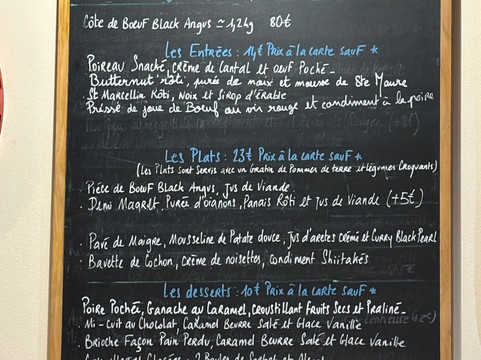 Côte de Boeuf Black Angus ≃ 1,2 kg 80€
Les Entrées : 14€ Prix à la carte sauf *
Poireau Snacké, crème de Cantal et oeuf Poché -
Butternut rôti, purée de maïx et mousse de Ste Maure
St Marcellin Rôti, Noix et Sirop d'érable
Préssé de joue de Boeuf au vin rouge et condiment à la poire
Les Plats : 23€ Prix à la carte sauf *
(Les Plats sont Servis avec un Gratin de Pommes de terre et légumes Croquants)
Pièce de Boeuf Black Angus, Jus de Viande
. Demi Magret, Purée d'oignons, Panais Rôti et Jus de Viande (+5€)
. Pavé de Maigre, Mousseline de Patate douce, Jus d'aretes crémé et Curry Black Pearl
. Bavette de Cochon, Crème de noisettes, condiment Shiitakés
Les desserts : 10€ Prix à la carte sauf *
Poire Pochée, Ganache au Caramel, croustillant Fruits Secs et Praliné -
. Mi-Cuit au Chocolat, Caramel Beurre Salé et Glace Vanille
. Brioche Façon Pain Perdu, Caramel Beurre Salé et Glace Vanille